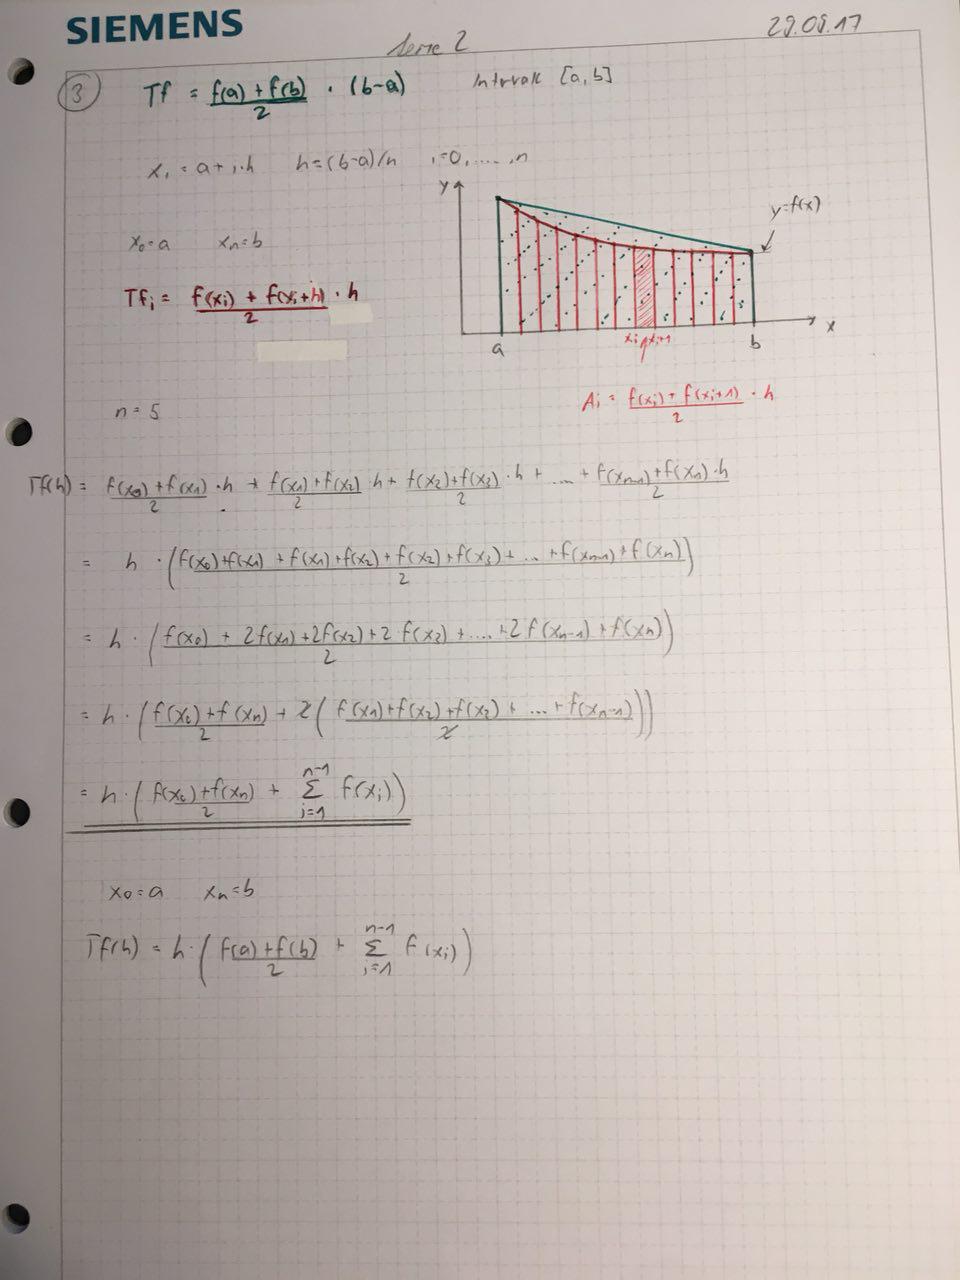 SIEMENS
Serie 2
29.09.17
3
Tf = (f(a) + f(b))/2 · (b-a)
Intervall [a, b]
xi = a + i·h h = (b-a)/n i=0, ...., n
x0 = a xn = b
Tfi = (f(xi) + f(xi+h))/2 · h
y
y=f(x)
x
a
xi xi+1
b
Ai = (f(xi) + f(xi+1))/2 · h
n = 5
Tf(h) = (f(x0) + f(x1))/2 · h + (f(x1) + f(x2))/2 h + (f(x2) + f(x3))/2 · h + .... + (f(xn-1) + f(xn))/2 · h
= h · ((f(x0) + f(x1) + f(x1) + f(x2) + f(x2) + f(x3) + ... + f(xn-1) + f(xn))/2)
= h · ((f(x0) + 2f(x1) + 2f(x2) + 2 f(x3) + .... + 2 f(xn-1) + f(xn))/2)
= h · ((f(x0) + f(xn))/2 + 2((f(x1) + f(x2) + f(x3) + ... + f(xn-1))/2))
= h · ((f(x0) + f(xn))/2 + Σ i=1 n-1 f(xi))
x0 = a xn = b
Tf(h) = h · ((f(a) + f(b))/2 + Σ i=1 n-1 f(xi))